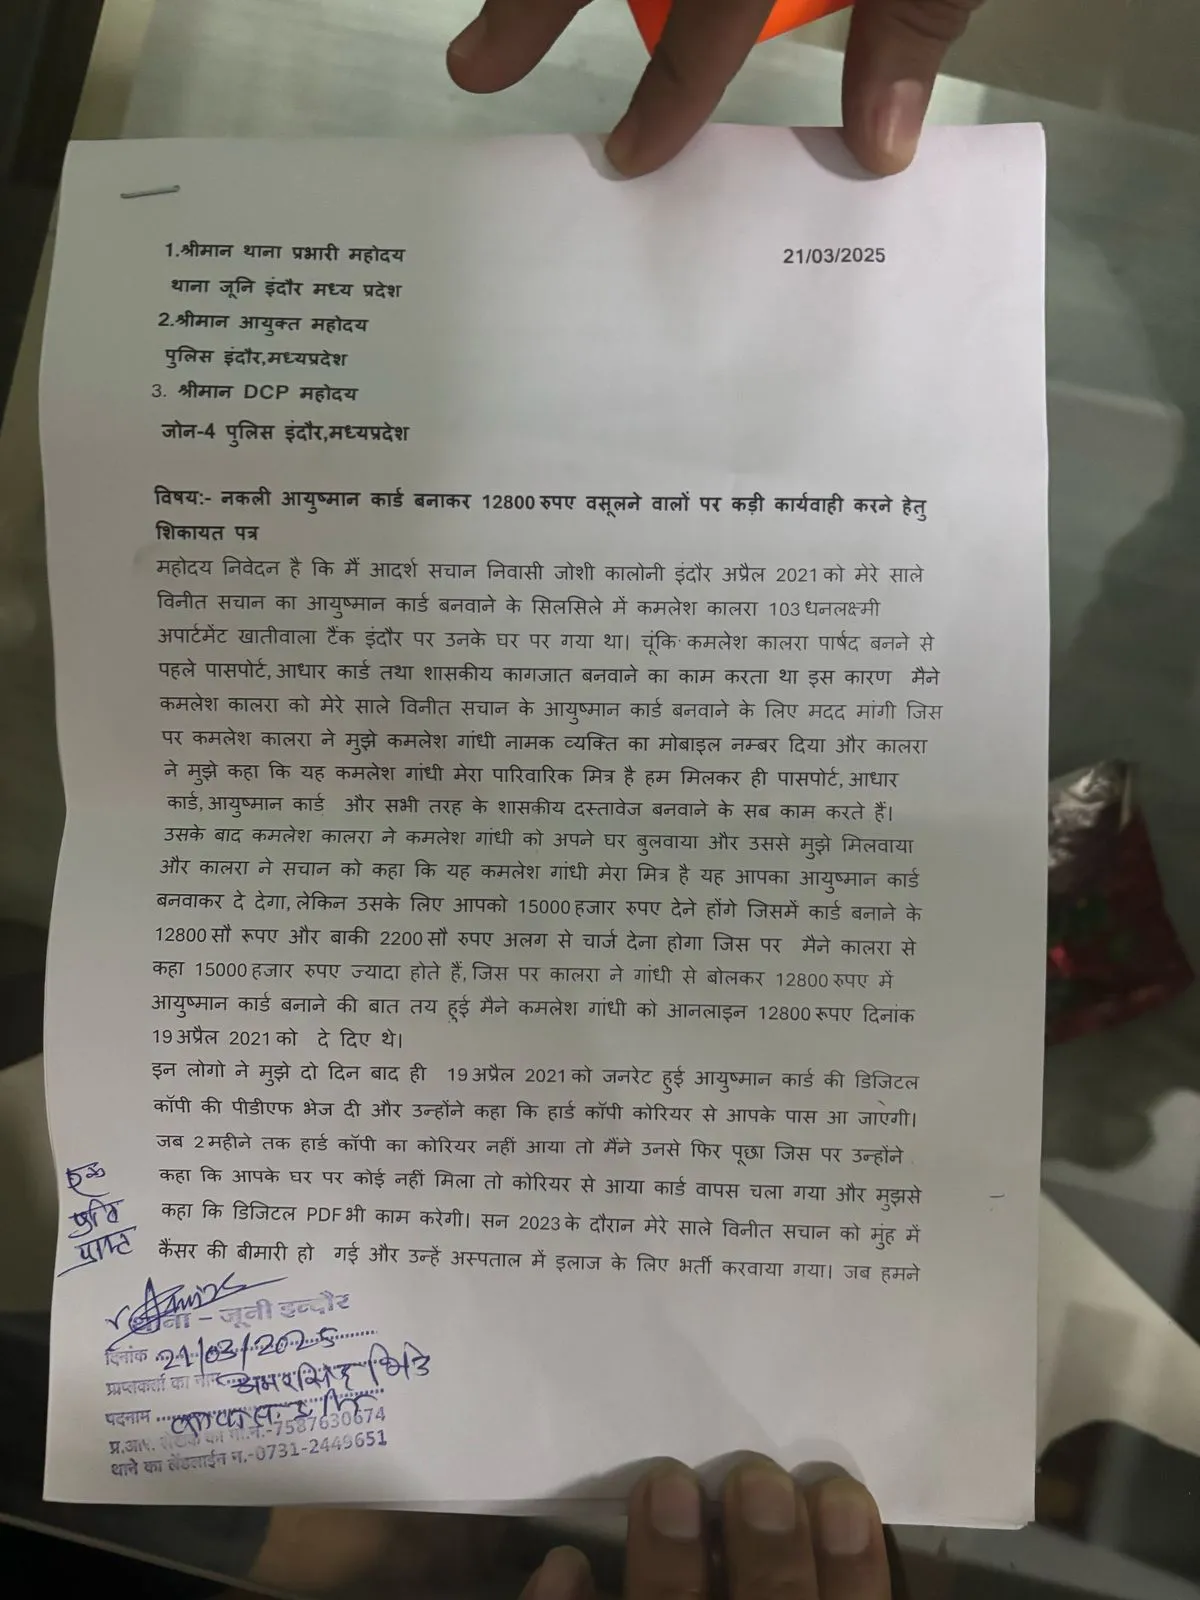 1.श्रीमान थाना प्रभारी महोदय
21/03/2025
थाना जूनि इंदौर मध्य प्रदेश
2.श्रीमान आयुक्त महोदय
पुलिस इंदौर,मध्यप्रदेश
3. श्रीमान DCP महोदय
जोन-4 पुलिस इंदौर,मध्यप्रदेश
विषय:- नकली आयुष्मान कार्ड बनाकर 12800 रुपए वसूलने वालों पर कड़ी कार्यवाही करने हेतु
शिकायत पत्र
महोदय निवेदन है कि मैं आदर्श सचान निवासी जोशी कालोनी इंदौर अप्रैल 2021 को मेरे साले
विनीत सचान का आयुष्मान कार्ड बनवाने के सिलसिले में कमलेश कालरा 103 धनलक्ष्मी
अपार्टमेंट खातीवाला टैंक इंदौर पर उनके घर पर गया था। चूंकि कमलेश कालरा पार्षद बनने से
पहले पासपोर्ट, आधार कार्ड तथा शासकीय कागजात बनवाने का काम करता था इस कारण मैने
कमलेश कालरा को मेरे साले विनीत सचान के आयुष्मान कार्ड बनवाने के लिए मदद मांगी जिस
पर कमलेश कालरा ने मुझे कमलेश गांधी नामक व्यक्ति का मोबाइल नम्बर दिया और कालरा
ने मुझे कहा कि यह कमलेश गांधी मेरा पारिवारिक मित्र है हम मिलकर ही पासपोर्ट, आधार
कार्ड, आयुष्मान कार्ड और सभी तरह के शासकीय दस्तावेज बनवाने के सब काम करते हैं।
उसके बाद कमलेश कालरा ने कमलेश गांधी को अपने घर बुलवाया और उससे मुझे मिलवाया
और कालरा ने सचान को कहा कि यह कमलेश गांधी मेरा मित्र है यह आपका आयुष्मान कार्ड
बनवाकर दे देगा, लेकिन उसके लिए आपको 15000 हजार रुपए देने होंगे जिसमें कार्ड बनाने के
12800 सौ रूपए और बाकी 2200 सौ रुपए अलग से चार्ज देना होगा जिस पर मैने कालरा से
कहा 15000 हजार रुपए ज्यादा होते हैं, जिस पर कालरा ने गांधी से बोलकर 12800 रुपए में
आयुष्मान कार्ड बनाने की बात तय हुई मैने कमलेश गांधी को आनलाइन 12800 रूपए दिनांक
19 अप्रैल 2021 को दे दिए थे।
इन लोगो ने मुझे दो दिन बाद ही 19 अप्रैल 2021 को जनरेट हुई आयुष्मान कार्ड की डिजिटल
कॉपी की पीडीएफ भेज दी और उन्होंने कहा कि हार्ड कॉपी कोरियर से आपके पास आ जाएगी।
जब 2 महीने तक हार्ड कॉपी का कोरियर नहीं आया तो मैंने उनसे फिर पूछा जिस पर उन्होंने
कहा कि आपके घर पर कोई नहीं मिला तो कोरियर से आया कार्ड वापस चला गया और मुझसे
कहा कि डिजिटल PDF भी काम करेगी। सन 2023 के दौरान मेरे साले विनीत सचान को मुंह में
कैंसर की बीमारी हो गई और उन्हें अस्पताल में इलाज के लिए भर्ती करवाया गया। जब हमने
एक
प्रति
प्राप्त
थाना - जूनी इन्दौर
दिनांक 21/03/2025
प्राप्तकर्ता का नाम अमरसिंह
पदनाम
प्र.आर. लेखक का मो.नं.-7587630674
थाने का लेंडलाईन न.-0731-2449651